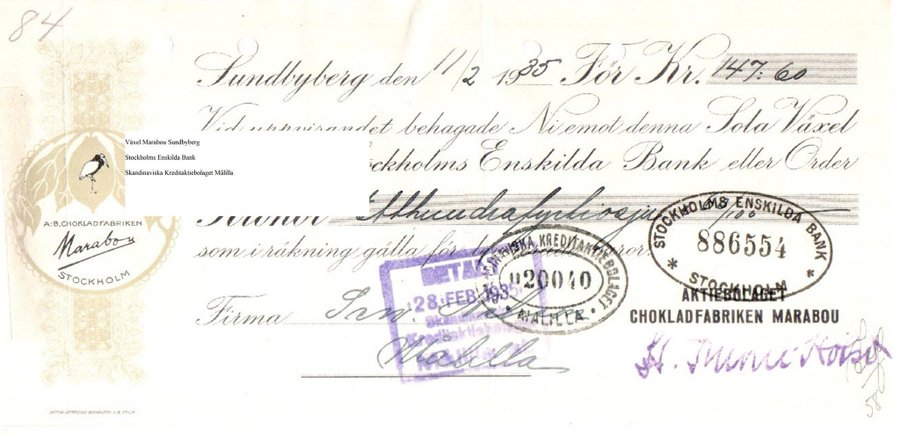 84
Sundbyberg den 11/2 1935 För Kr. 147:60
behagade Ni emot denna Sola Växel
Växel Marabou Sundbyberg
Stockholms Enskilda Bank
Skandinaviska Kreditaktiebolaget Målilla
Stockholms Enskilda Bank eller Order
Kronor Etthundrafyrtiosju 60/100
som i räkning gälla för
A.B. CHOKLADFABRIKEN
Marabou
STOCKHOLM
STOCKHOLMS ENSKILDA BANK
886554
* STOCKHOLM *
SKANDINAVISKA KREDITAKTIEBOLAGET
020040
MÅLILLA
BETALT
28 FEB. 1935
Skandinaviska
Kreditaktiebolaget
AKTIEBOLAGET
CHOKLADFABRIKEN MARABOU
Firma
Målilla
58